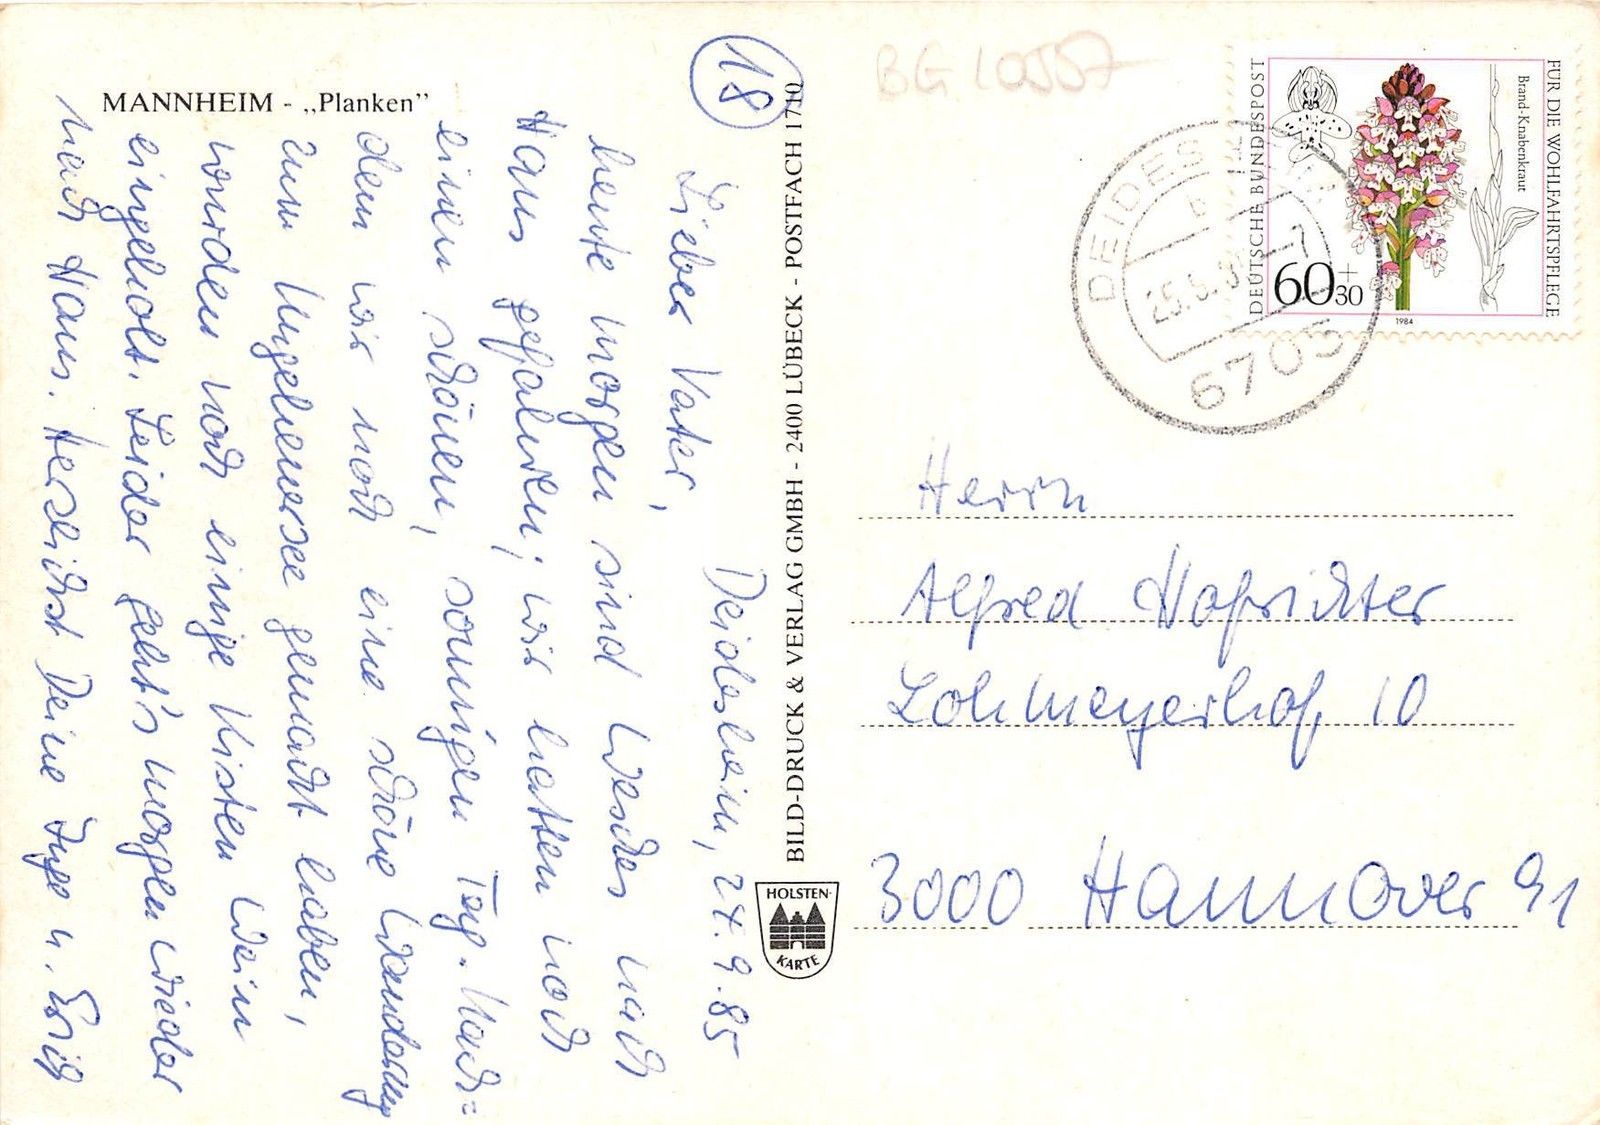 MANNHEIM - „Planken”
18
Deidesheim, 24.9.85
Lieber Vater,
heute morgen sind Werders nach
Haus gefahren; wir hatten noch
einen schönen, sonnigen Tag. Nach=
dem wir noch eine schöne Wanderung
zum Ungeheuersee gemacht haben,
wurden noch einige Kisten Wein
eingeholt. Leider geht's morgen wieder
nach Haus. Herzlichst Deine Inge u. Erich
BILD-DRUCK & VERLAG GMBH - 2400 LÜBECK - POSTFACH 1710
HOLSTEN-
KARTE
BG 10557
DEUTSCHE BUNDESPOST
60+30
1984
Brand-Knabenkraut
FÜR DIE WOHLFAHRTSPFLEGE
DEIDESHEIM
6705
Herrn
Alfred Hofrichter
Lohmeyerhof 10
3000 Hannover 91